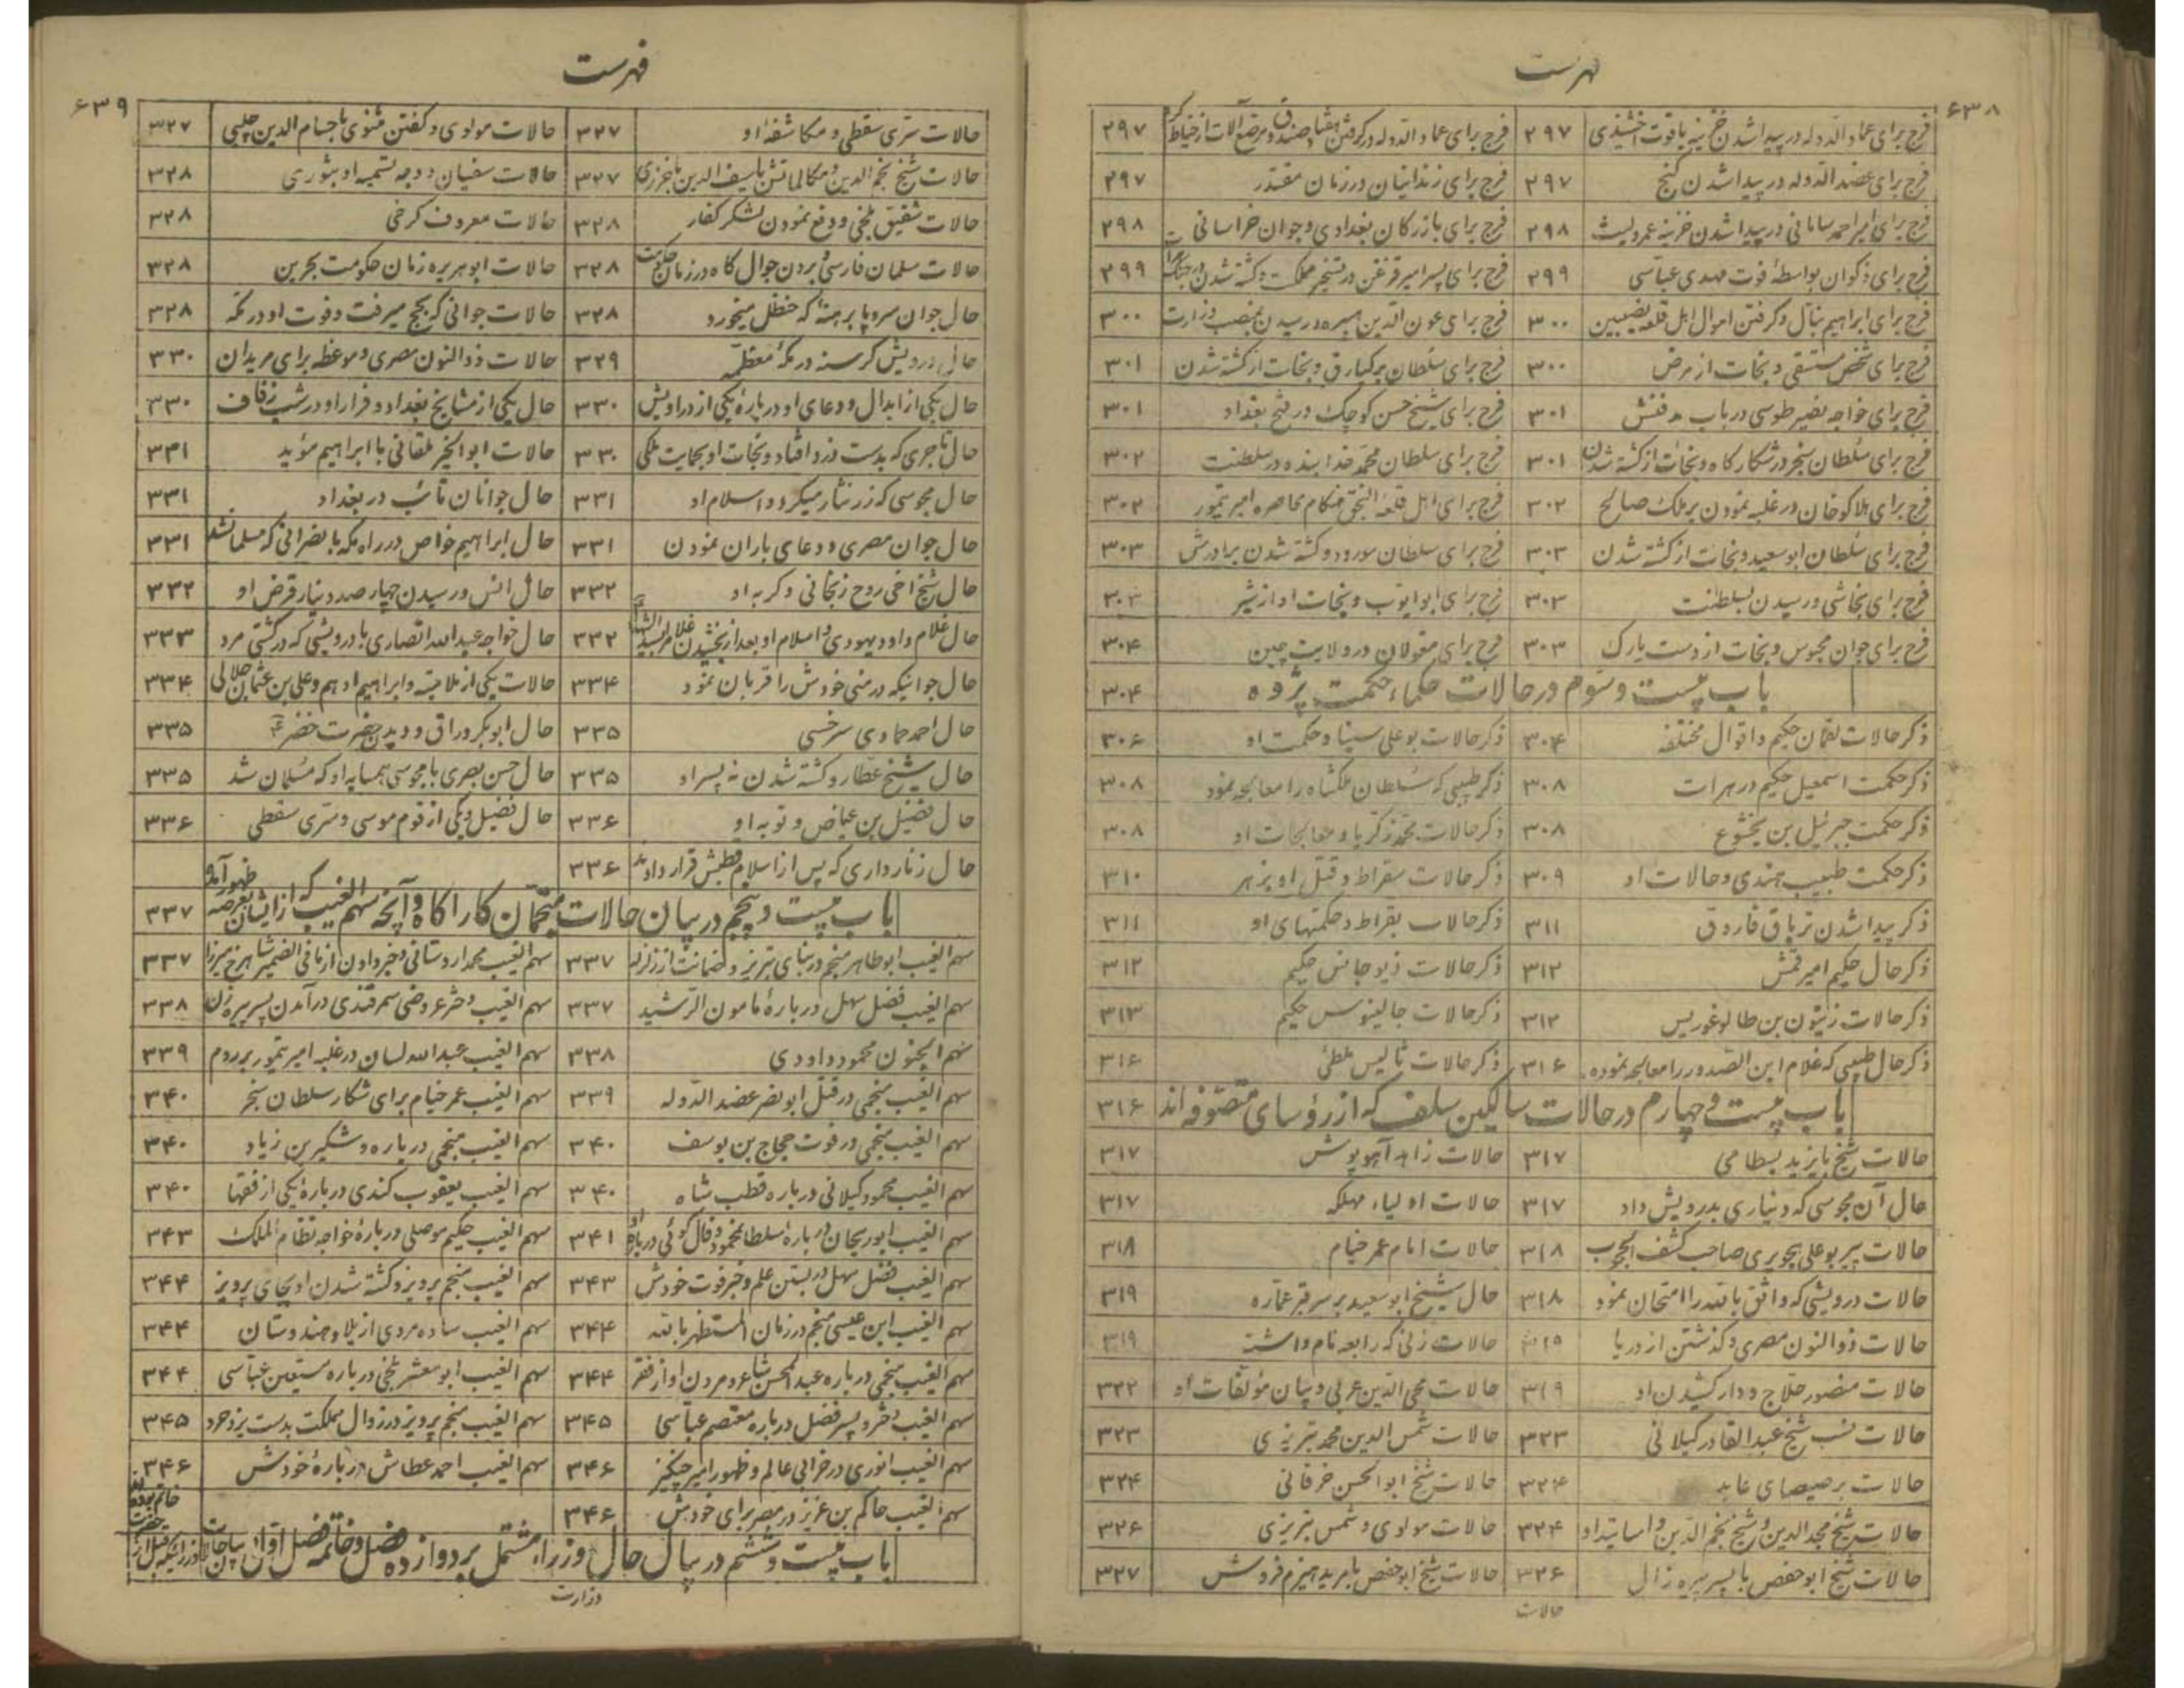 فهرست
۶۳۸
فرج برای عماد الدوله در پیدا شدن خزینه یاقوت اخشیدی ۲۹۷ فرج برای عماد الدوله در گرفتن هفتاد صندوق مرصع آلات از خیاط کر ۲۹۷
فرج برای عضد الدوله در پیدا شدن گنج ۲۹۷ فرج برای زندانیان در زمان مقتدر ۲۹۷
فرج برای امیر احمد سامانی در پیدا شدن خزینه عمرو لیث ۲۹۸ فرج برای بازرگان بغدادی و جوان خراسانی ۲۹۸
فرج برای ذکوان بواسطهٔ فوت مهدی عباسی ۲۹۹ فرج برای پسر امیر قزغن در تسخیر مملکت و کشته شدن در جنگ ۲۹۹
فرج برای ابراهیم ینال و گرفتن اموال اهل قلعه نصیبین ۳۰۰ فرج برای عون الدین هبیره در رسیدن بمنصب وزارت ۳۰۰
فرج برای شخص مستسقی و نجات از مرض ۳۰۰ فرج برای سلطان برکیارق و نجات از کشته شدن ۳۰۱
فرج برای خواجه نصیر طوسی در باب مدفنش ۳۰۱ فرج برای شیخ حسن کوچک در فتح بغداد ۳۰۱
فرج برای سلطان سنجر در شکارگاه و نجات از کشته شدن ۳۰۱ فرج برای سلطان محمد خدابنده در سلطنت ۳۰۲
فرج برای هلاکو خان در غلبه نمودن بر ملک صالح ۳۰۲ فرج برای اهل قلعه النجق هنگام محاصره امیر تیمور ۳۰۲
فرج برای سلطان ابو سعید و نجات از کشته شدن ۳۰۳ فرج برای سلطان مودود و کشته شدن برادرش ۳۰۳
فرج برای نجاشی و رسیدن بسلطنت ۳۰۳ فرج برای ابو ایوب و نجات او از شیر ۳۰۳
فرج برای جوان محبوس و نجات از دست یارک ۳۰۳ فرج برای مغولان در ولایت چین ۳۰۴
باب بیست و سوم در حالات حکماء حکمت پژوه ۳۰۴
ذکر حالات لقمان حکیم و اقوال مختلفه ۳۰۴ ذکر حالات بوعلی سینا و حکمت او ۳۰۶
ذکر حکمت اسمعیل حکیم در هرات ۳۰۸ ذکر طبیبی که سلطان ملکشاه را معالجه نمود ۳۰۸
ذکر حکمت جبرئیل بن بختیشوع ۳۰۸ ذکر حالات محمد زکریا و معالجات او ۳۰۸
ذکر حکمت طبیب هندی و حالات او ۳۰۹ ذکر حالات سقراط و قتل او بزهر ۳۱۰
ذکر پیدا شدن تریاق فاروق ۳۱۱ ذکر حالات بقراط و حکمتهای او ۳۱۱
ذکر حال حکیم امیر قمش ۳۱۲ ذکر حالات ذیوجانس حکیم ۳۱۲
ذکر حالات زیتون بن طالوغورس ۳۱۲ ذکر حالات جالینوس حکیم ۳۱۳
ذکر حال طبیبی که غلام ابن الصدور را معالجه نموده ۳۱۶ ذکر حالات ثالیس ملطی ۳۱۶
باب بیست و چهارم در حالات سالکین سلف که از رؤسای متصوفه‌اند ۳۱۶
حالات شیخ بایزید بسطامی ۳۱۷ حالات زاهد آهو پوش ۳۱۷
حال آن مجوسی که دیناری بدرویش داد ۳۱۷ حالات اولیاء مهلکه ۳۱۷
حالات پیر بوعلی هجویری صاحب کشف المحجوب ۳۱۸ حالات امام عمر خیام ۳۱۸
حالات درویشی که واثق بالله را امتحان نمود ۳۱۸ حال شیخ ابو سعید بر سر قبر عماره ۳۱۹
حالات ذوالنون مصری و گذشتن از دریا ۳۱۹ حالات زنی که رابعه نام داشت ۳۱۹
حالات منصور حلاج و دار کشیدن او ۳۱۹ حالات محی الدین عربی و بیان مؤلفات او ۳۲۲
حالات نسب شیخ عبد القادر گیلانی ۳۲۳ حالات شمس الدین محمد تبریزی ۳۲۳
حالات برصیصای عابد ۳۲۴ حالات شیخ ابوالحسن خرقانی ۳۲۴
حالات شیخ مجد الدین و شیخ نجم الدین و اساتید او ۳۲۴ حالات مولوی و شمس تبریزی ۳۲۶
حالات شیخ ابوحفص با پسر پیره زال ۳۲۶ حالات شیخ ابوحفص با مرید هیزم فروش ۳۲۷
حالات
فهرست
۶۳۹
حالات سری سقطی و مکاشفه او ۳۲۷ حالات مولوی و گفتن مثنوی با حسام الدین چلپی ۳۲۷
حالات شیخ نجم الدین و مکالماتش با سیف الدین باخرزی ۳۲۷ حالات سفیان و وجه تسمیه او بثوری ۳۲۸
حالات شقیق بلخی و دفع نمودن لشکر کفار ۳۲۸ حالات معروف کرخی ۳۲۸
حالات سلمان فارسی و بردن جوال کاه در زمان حکومت ۳۲۸ حالات ابو هریره زمان حکومت بحرین ۳۲۸
حال جوان سر و پا برهنهٔ که حنظل میخورد ۳۲۸ حالات جوانی که بحج میرفت و فوت او در مکه ۳۲۸
حال درویش گرسنه در مکهٔ معظمه ۳۲۹ حالات ذوالنون مصری و موعظه برای مریدان ۳۳۰
حال یکی از ابدال و دعای او دربارهٔ یکی از دراویش ۳۳۰ حال یکی از مشایخ بغداد و فرار او در شب زفاف ۳۳۰
حال تاجری که بدست دزد افتاد و نجات او بحمایت ملکی ۳۳۰ حالات ابوالخیر ملقانی با ابراهیم مؤید ۳۳۱
حال مجوسی که زر نثار میکرد و اسلام او ۳۳۱ حال جوانان تائب در بغداد ۳۳۱
حال جوان مصری و دعای باران نمودن ۳۳۱ حال ابراهیم خواص در راه مکه با نصرانی که مسلمان شد ۳۳۱
حال شیخ اخی روح زنجانی و گربه او ۳۳۲ حال انس و رسیدن چهار صد دینار قرض او ۳۳۲
حال غلام داود یهودی و اسلام او بعد از بخشیدن غلام بسید الشهدا ۳۳۲ حال خواجه عبد الله انصاری با درویشی که در کشتی مرد ۳۳۳
حال جوانیکه در منی خودش را قربان نمود ۳۳۴ حالات یکی از ملامتیه و ابراهیم ادهم و علی بن عثمان جلالی ۳۳۴
حال احمد حمادی سرخسی ۳۳۵ حال ابوبکر وراق و دیدن حضرت خضر ۳۳۵
حال شیخ عطار و کشته شدن نه پسر او ۳۳۵ حال حسن بصری با مجوسی همسایه او که مسلمان شد ۳۳۵
حال فضیل بن عیاض و توبه او ۳۳۶ حال فضیل و یکی از قوم موسی و سری سقطی ۳۳۶
حال زنارداری که پس از اسلام قطبش قرار دادند ۳۳۶
باب بیست و پنجم در بیان حالات منجمان کار آگاه و آنچه سهم الغیب که از ایشان بعرصه ظهور آمده ۳۳۷
سهم الغیب ابوطاهر منجم در بنای تبریز و ضمانت از زلزله ۳۳۷ سهم الغیب محمد اردستانی و خبر دادن از مافی الضمیر شاهرخ میرزا ۳۳۷
سهم الغیب فضل سهل دربارهٔ مامون الرشید ۳۳۷ سهم الغیب دختر عروضی سمرقندی در آمدن پسر پیره زن ۳۳۸
سهم الجنون محمود داودی ۳۳۸ سهم الغیب عبدالله لسان در غلبه امیر تیمور بر روم ۳۳۹
سهم الغیب منجمی در قتل ابو نصر عضد الدوله ۳۳۹ سهم الغیب عمر خیام برای شکار سلطان سنجر ۳۴۰
سهم الغیب منجمی در فوت حجاج بن یوسف ۳۴۰ سهم الغیب منجمی درباره وشمگیر بن زیاد ۳۴۰
سهم الغیب محمود گیلانی درباره قطب شاه ۳۴۰ سهم الغیب یعقوب کندی دربارهٔ یکی از فقها ۳۴۰
سهم الغیب ابوریحان درباره سلطان محمود و فال گوئی درباره او ۳۴۱ سهم الغیب حکیم موصلی دربارهٔ خواجه نظام الملک ۳۴۳
سهم الغیب فضل سهل در بستن علم و خبر فوت خودش ۳۴۳ سهم الغیب منجم پرویز و کشته شدن او بجای پرویز ۳۴۴
سهم الغیب ابن عیسی منجم در زمان المستظهر بالله ۳۴۴ سهم الغیب ساده مردی از بلاد هندوستان ۳۴۴
سهم الغیب منجمی درباره عبد المحسن شاعر و مردن او از فقر ۳۴۴ سهم الغیب ابو معشر بلخی درباره مستعین عباسی ۳۴۴
سهم الغیب دختر و پسر فضل درباره معتصم عباسی ۳۴۵ سهم الغیب منجم پرویز در زوال مملکت بدست یزدجرد ۳۴۵
سهم الغیب انوری در خرابی عالم و ظهور امیر چنگیز ۳۴۶ سهم الغیب احمد عطاش دربارهٔ خودش ۳۴۶
سهم الغیب حاکم بن عزیز در مصر برای خودش ۳۴۶
باب بیست و ششم در بیان حال وزراء مشتمل بر دوازده فصل و خاتمه فصل اول در بیان حالات وزرائیکه قبل از حضرت خاتم بوده‌اند
وزارت